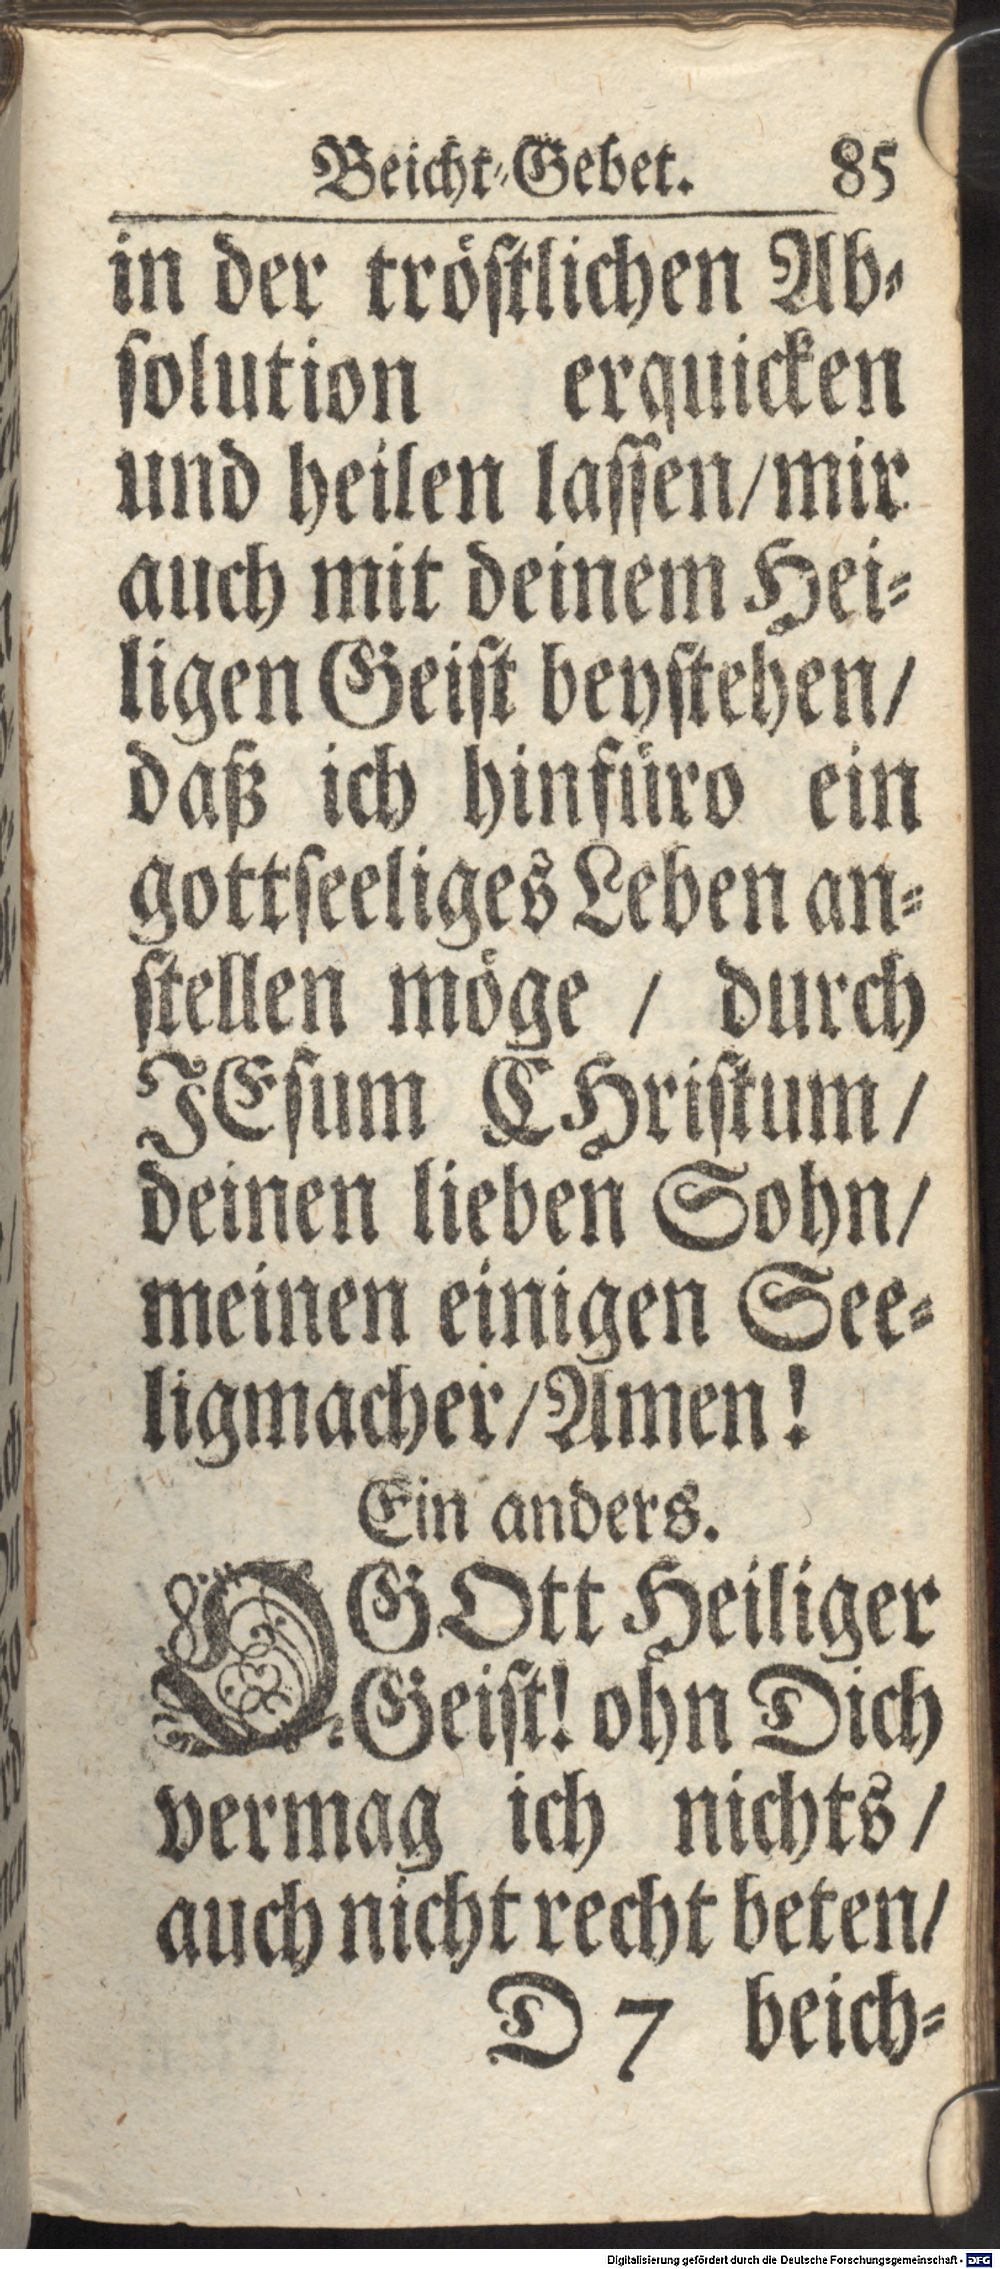 Beicht-Gebet. 85
in der tröstlichen Ab-
solution erquicken
und heilen lassen/mir
auch mit deinem Hei-
ligen Geist beystehen/
daß ich hinfüro ein
gottseeliges Leben an-
stellen möge / durch
JEsum CHristum/
deinen lieben Sohn/
meinen einigen See-
ligmacher/Amen!
Ein anders.
O GOtt Heiliger
Geist! ohn Dich
vermag ich nichts/
auch nicht recht beten/
D 7 beich-
Digitalisierung gefördert durch die Deutsche Forschungsgemeinschaft - DFG